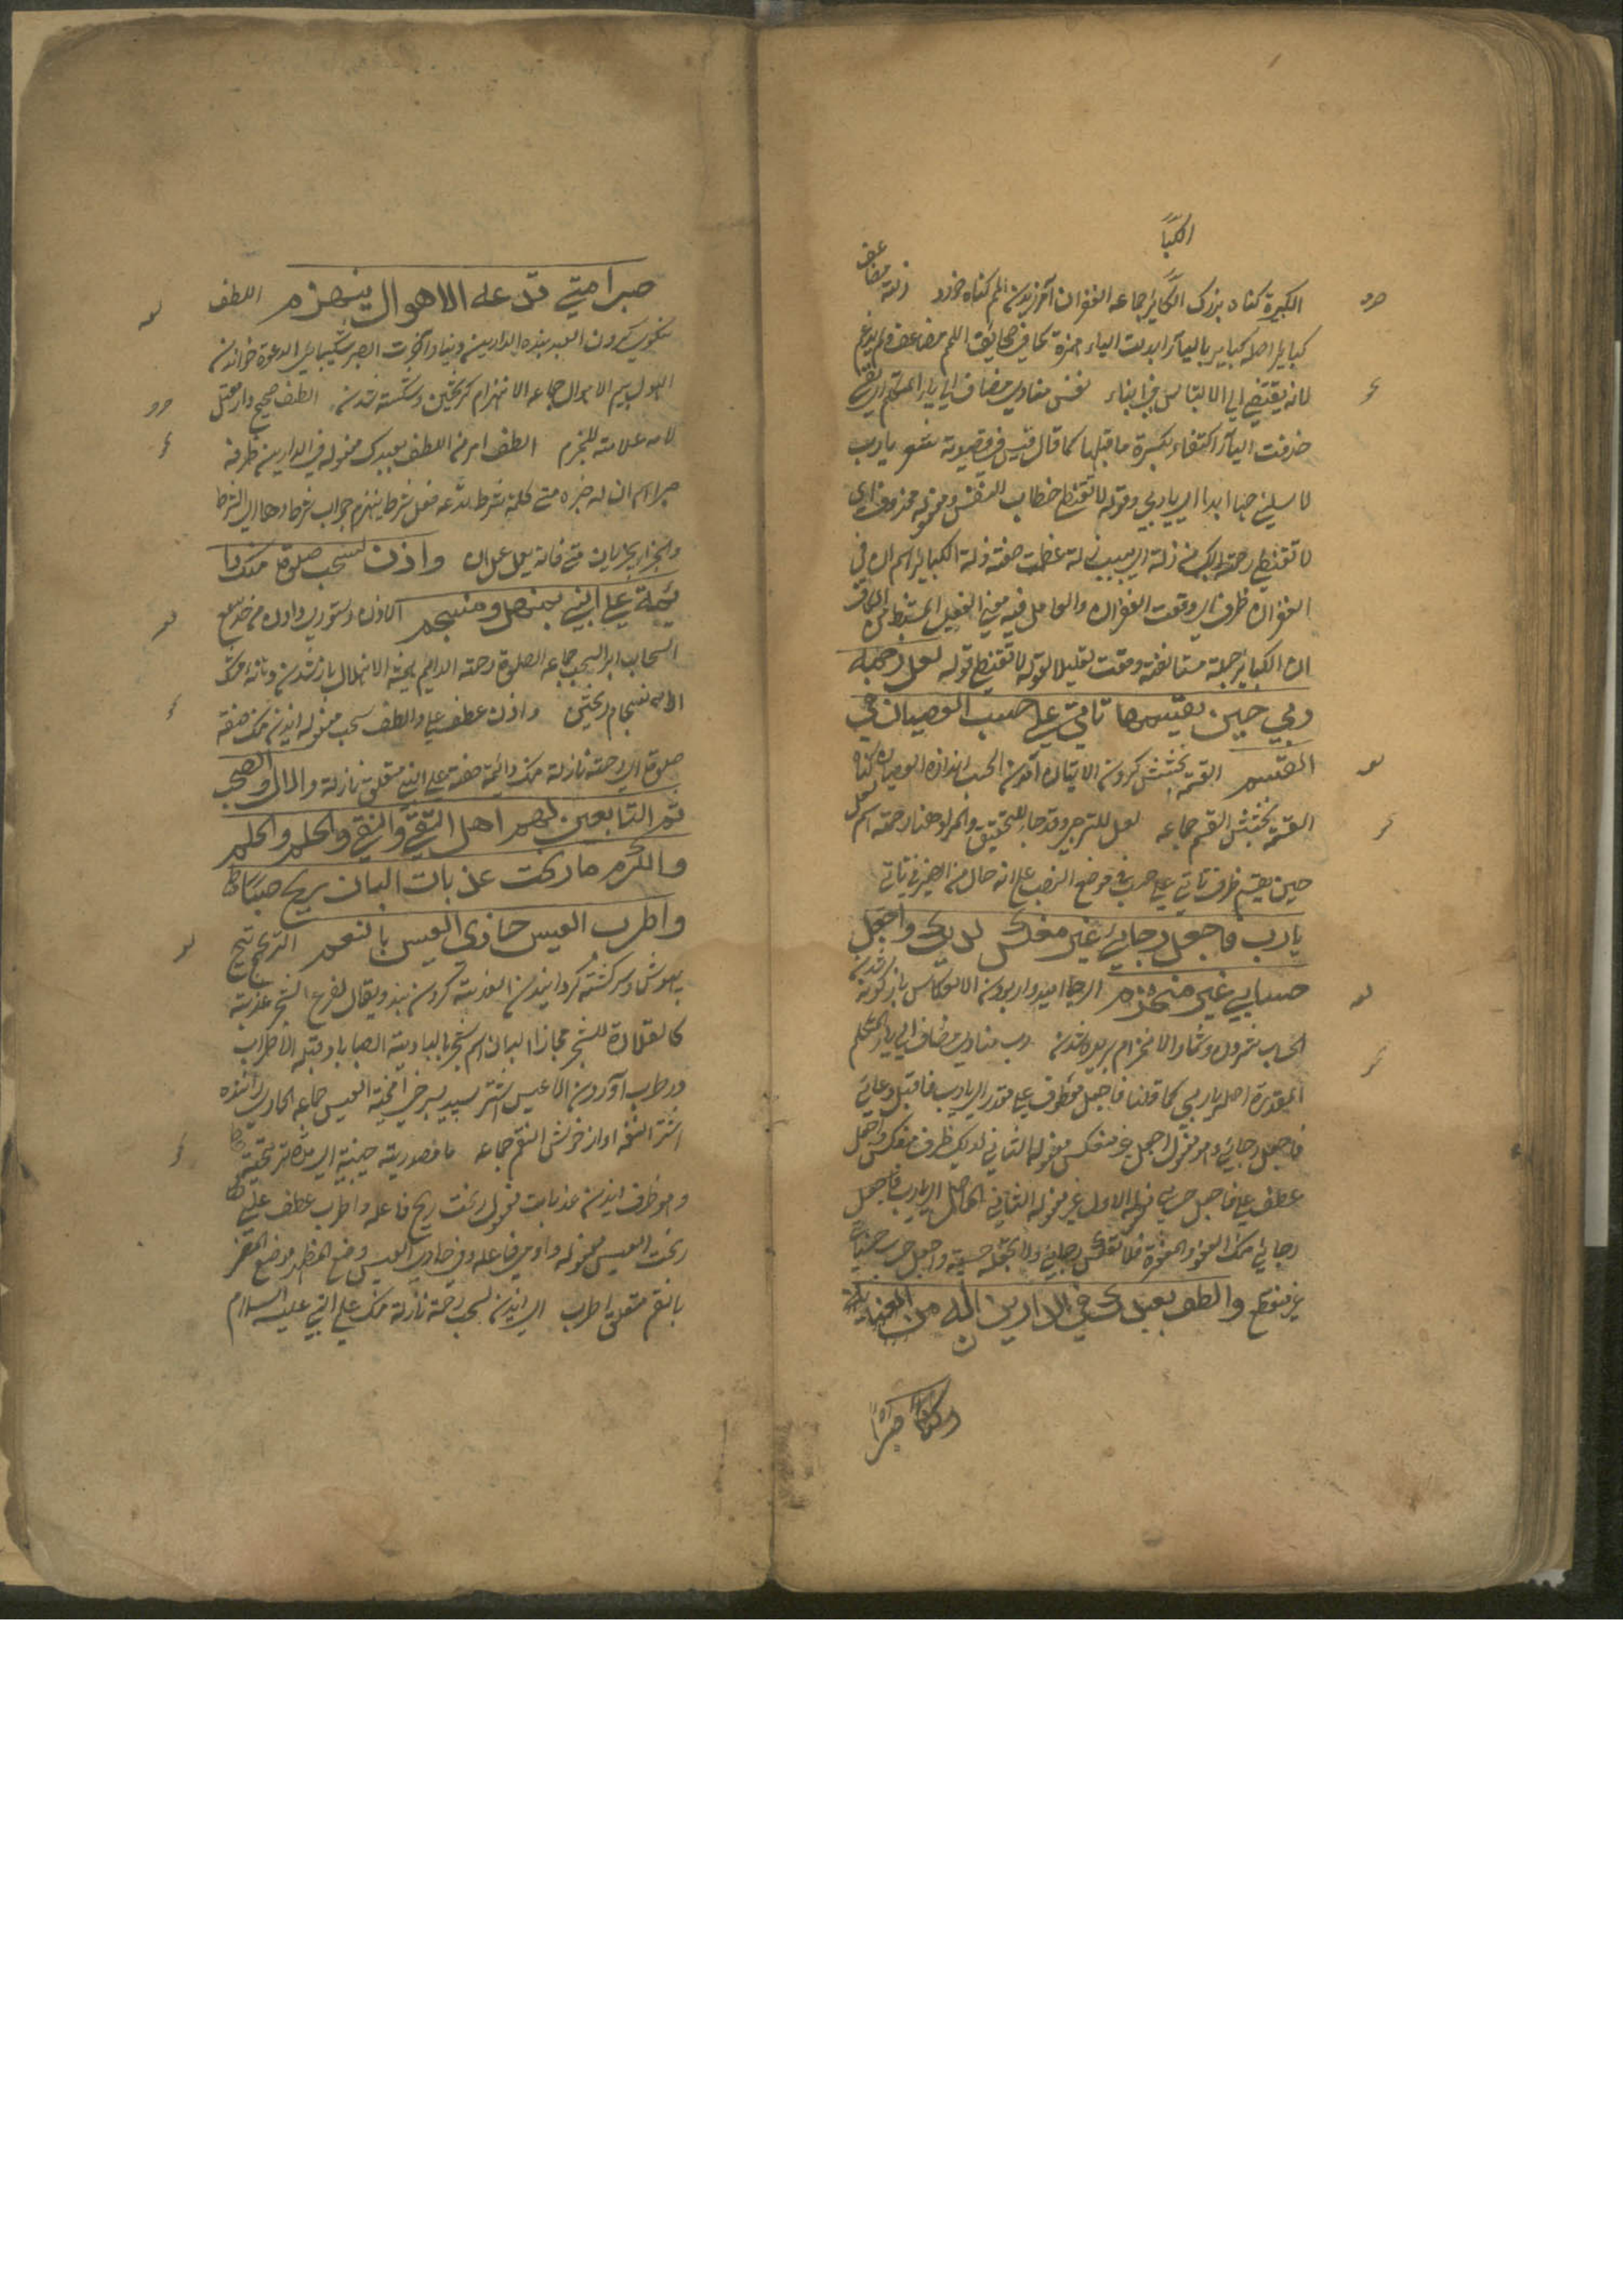 الكبا
الكبيرة كناه بزرك الكبائر جماعه الغفران آمرزيدن اللمم كناه خورد زلة مضاعف
كبائر اصله كباير بالياء ابدلت الياء همزة كما في صحايف اللمم مضاعف ولم يدغم
لانه يقتضي الي الالتباس في ابناء نفس منادي مضاف الي ياء المتكلم اي نفسي
حذفت الياء اكتفاء بكسرة ما قبلها كما قال قيس في قصيدته شعر يا رب
لا تسلبني حبها ابدا اي يا ربي وقوله لا تقنطي خطاب للنفس ومفعوله محذوف اي
لا تقنطي رحمة الله من زلة اي بسبب زلة عظمت صفة زلة الكبائر اسم ان في
الغفران ظرف اي وقعت الغفران والعامل فيه معني الفعل المستنبط من الكاف
ان الكبائر جملة مستانفة وقعت تعليلا لقوله لا تقنطي قوله لعل رحمة
ربي حين يقسمها تاتي علي حسب العصيان في
القسم القسمة بخشش كردن الاتيان آمدن الحسب اندازه العصيان كناه
القسمة بخشش القسم جماعه لعل للترجي وقد جاء للتحقيق والمراد هنا رحمة اسم لعل
حين يقسم ظرف تاتي علي حسب في موضع النصب علي انه حال من الضمير في تاتي
يا رب فاجعل رجائي غير منعكس لديك واجعل
حسابي غير منخرم الرجا اميدوار بودن الانعكاس باز كونه شدن
الحساب شمردن وشمار الانخرام بريده شدن رب منادي مضاف الي ياء المتكلم
المقدرة اصله يا ربي كما قلنا فاجعل معطوف علي مقدر اي يا رب فاقبل دعائي
فاجعل رجائي وهو مفعول اجعل غير منعكس مفعوله الثاني لديك ظرف منعكس واجعل
عطف علي فاجعل حسابي مفعوله الاول غير مفعوله الثاني الحاصل اي يا رب فاجعل
رجائي منك العفو والمغفرة فلا تعكس رجائي ولا تجعله خيبة واجعل حسابي
غير منقطع والطف بعبدك في الدارين ان له من العناية
صبرا متي تدعه الاهوال ينهزم اللطف
نكويي كردن العبد بنده الدارين دنيا وآخرت الصبر شكيبائي الدعوة خواندن
الهول بيم الاهوال جماعه الانهزام كريختن وشكسته شدن الطف صحيح وان معتل
لامه علامته للجزم الطف امر من اللطف بعبدك مفعوله في الدارين ظرفه
صبرا اسم ان له خبره متي كلمة شرط تدعه فعل شرط ينهزم جواب شرط وهما اي الشرط
والجزاء يجزمان متي فانه يعمل عمل ان واذن لسحب صلوة منك دا
ئمة علي النبي بمنهل ومنسجم الاذن دستوري دادن من حد سمع
السحاب ابر السحب جماعه الصلوة رحمة الدايم هميشه الانهلال باز شدن
الانسجام ريختن واذن عطف علي والطف لسحب مفعوله ايذن منك صفة
صلوة اي رحمة نازلة منك دائمة صفة علي النبي متعلق نازلة والآل والصحب
ثم التابعين لهم اهل التقي والنقي والحلم والحلم
والكرم ما رنحت عذبات البان ريح صبا
واطرب العيس حادي العيس بالنغم الترنيح
بيهوش وسركشته كردانيدن العذبة كردن بند ويقال لفرع الشجر عذبة
كالقلادة للشجر مجازا البان اسم شجر بالبادية الصبا باد قبله الاطراب
در طرب آوردن الاعيس اشتر سپيد بسرخي آميخته العيس جماعه الحادي راننده
اشتر النغمة اواز خوش النغم جماعه ما مصدرية حينية اي مدة ترنيحه
وهو ظرف ايذن عذبات مفعول رنحت ريح فاعله واطرب عطف علي
رنحت العيس مفعوله وحادي فاعله وفي حادي العيس وضع المظهر موضع المضمر
بالنغم متعلق اطرب اي ايذن لسحب رحمة نازلة منك علي النبي عليه السلام